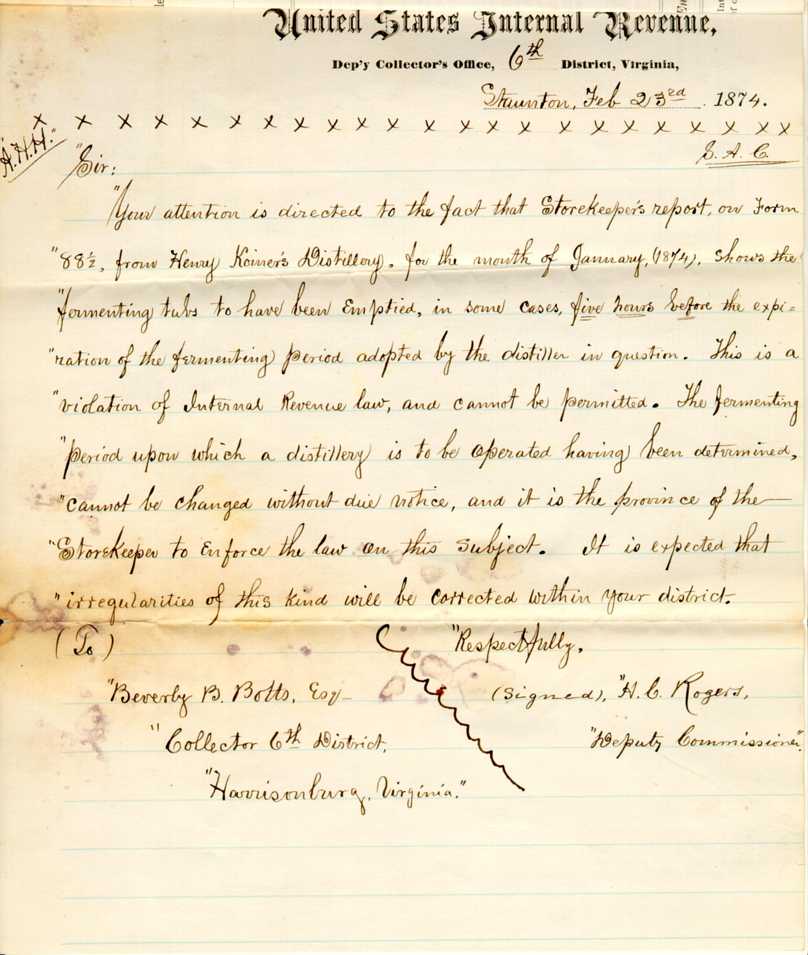 United States Internal Revenue,
Dep'y Collector's Office, 6th District, Virginia,
Staunton, Feb 23rd 1874.
x x x x x x x x x x x x x x x x x x x x x
A.H.H."
S. A. C.
"Sir:
"Your attention is directed to the fact that Storekeeper's report, on Form
"88½, from Henry Koiner's Distillery, for the month of January, (1874), shows the
"fermenting tubs to have been Emptied, in some cases, five hours before the expi=
"ration of the fermenting period adopted by the distiller in question. This is a
"violation of Internal Revenue law, and cannot be permitted. The fermenting
"period upon which a distillery is to be operated having been determined,
"cannot be changed without due notice, and it is the province of the
"Storekeeper to Enforce the law on this subject. It is expected that
"irregularities of this kind will be corrected within your district.
(To) "Respectfully,
"Beverly B. Botts, Esq (Signed), "H. C. Rogers,
"Collector 6th District, "Deputy Commissioner".
"Harrisonburg, Virginia."